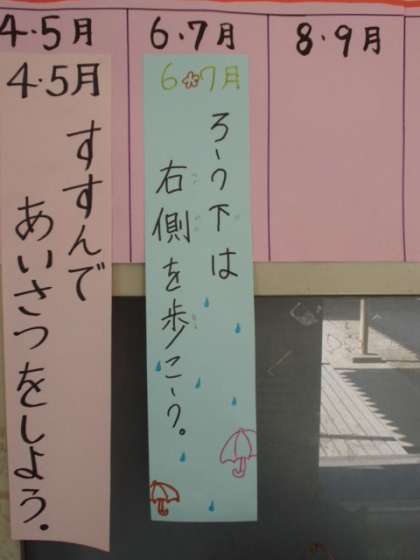 4.5月
6.7月
8.9月
4.5月
すすんで
あいさつをしよう。
6 7月
ろう下は
右側を歩こう。